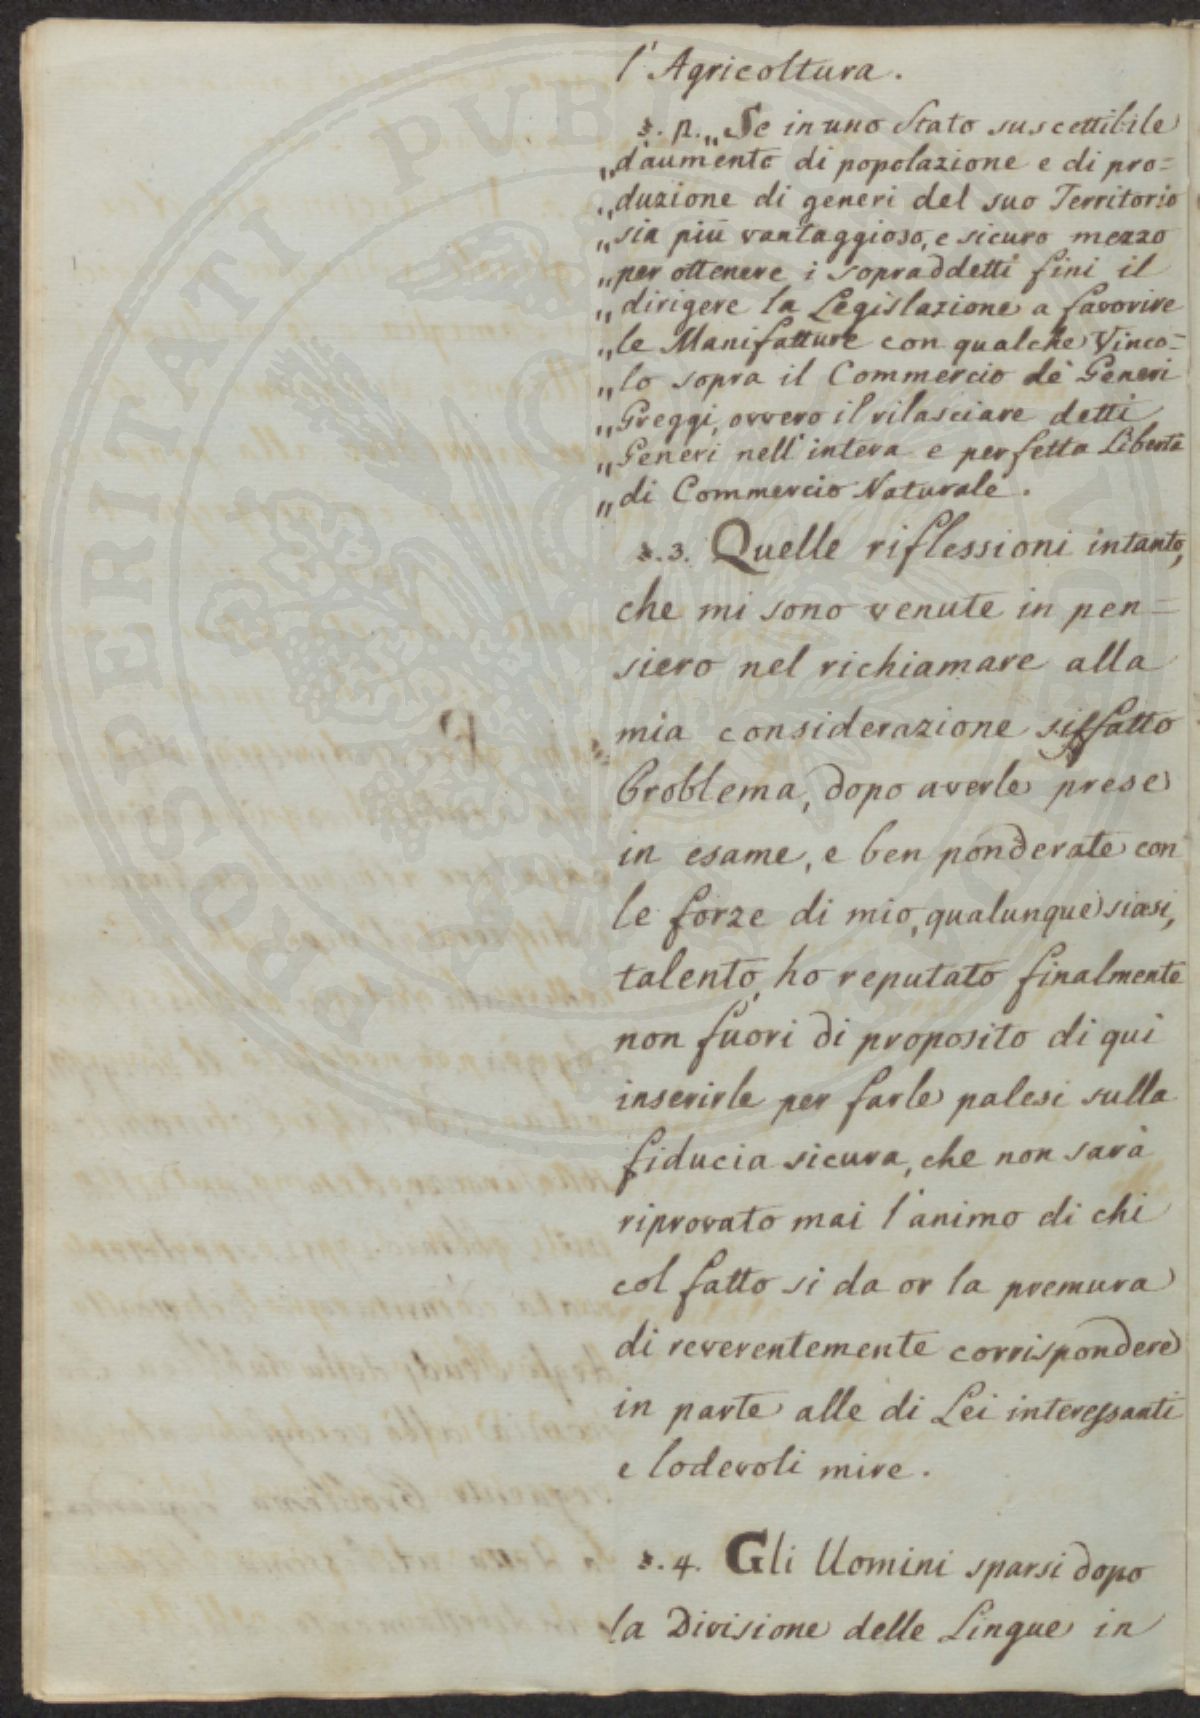 l'Agricoltura.
§. 2. „Se in uno Stato suscettibile
„d'aumento di popolazione e di pro=
„duzione di generi del suo Territorio
„sia più vantaggioso, e sicuro mezzo
„per ottenere i sopraddetti fini il
„dirigere la Legislazione a favorire
„le Manifatture con qualche Vinco=
„lo sopra il Commercio de' Generi
„Greggi, ovvero il rilasciare detti
„Generi nell'intera e perfetta Libertà
„di Commercio Naturale.
§. 3. Quelle riflessioni intanto,
che mi sono venute in pen=
siero nel richiamare alla
mia considerazione siffatto
Problema, dopo averle prese
in esame, e ben ponderate con
le forze di mio, qualunque siasi,
talento, ho reputato finalmente
non fuori di proposito di qui
inserirle per farle palesi sulla
fiducia sicura, che non sarà
riprovato mai l'animo di chi
col fatto si da or la premura
di reverentemente corrispondere
in parte alle di Lei interessanti
e lodevoli mire.
§. 4. Gli Uomini sparsi dopo
la Divisione delle Lingue in
PROSPERITATI PUBLICAE